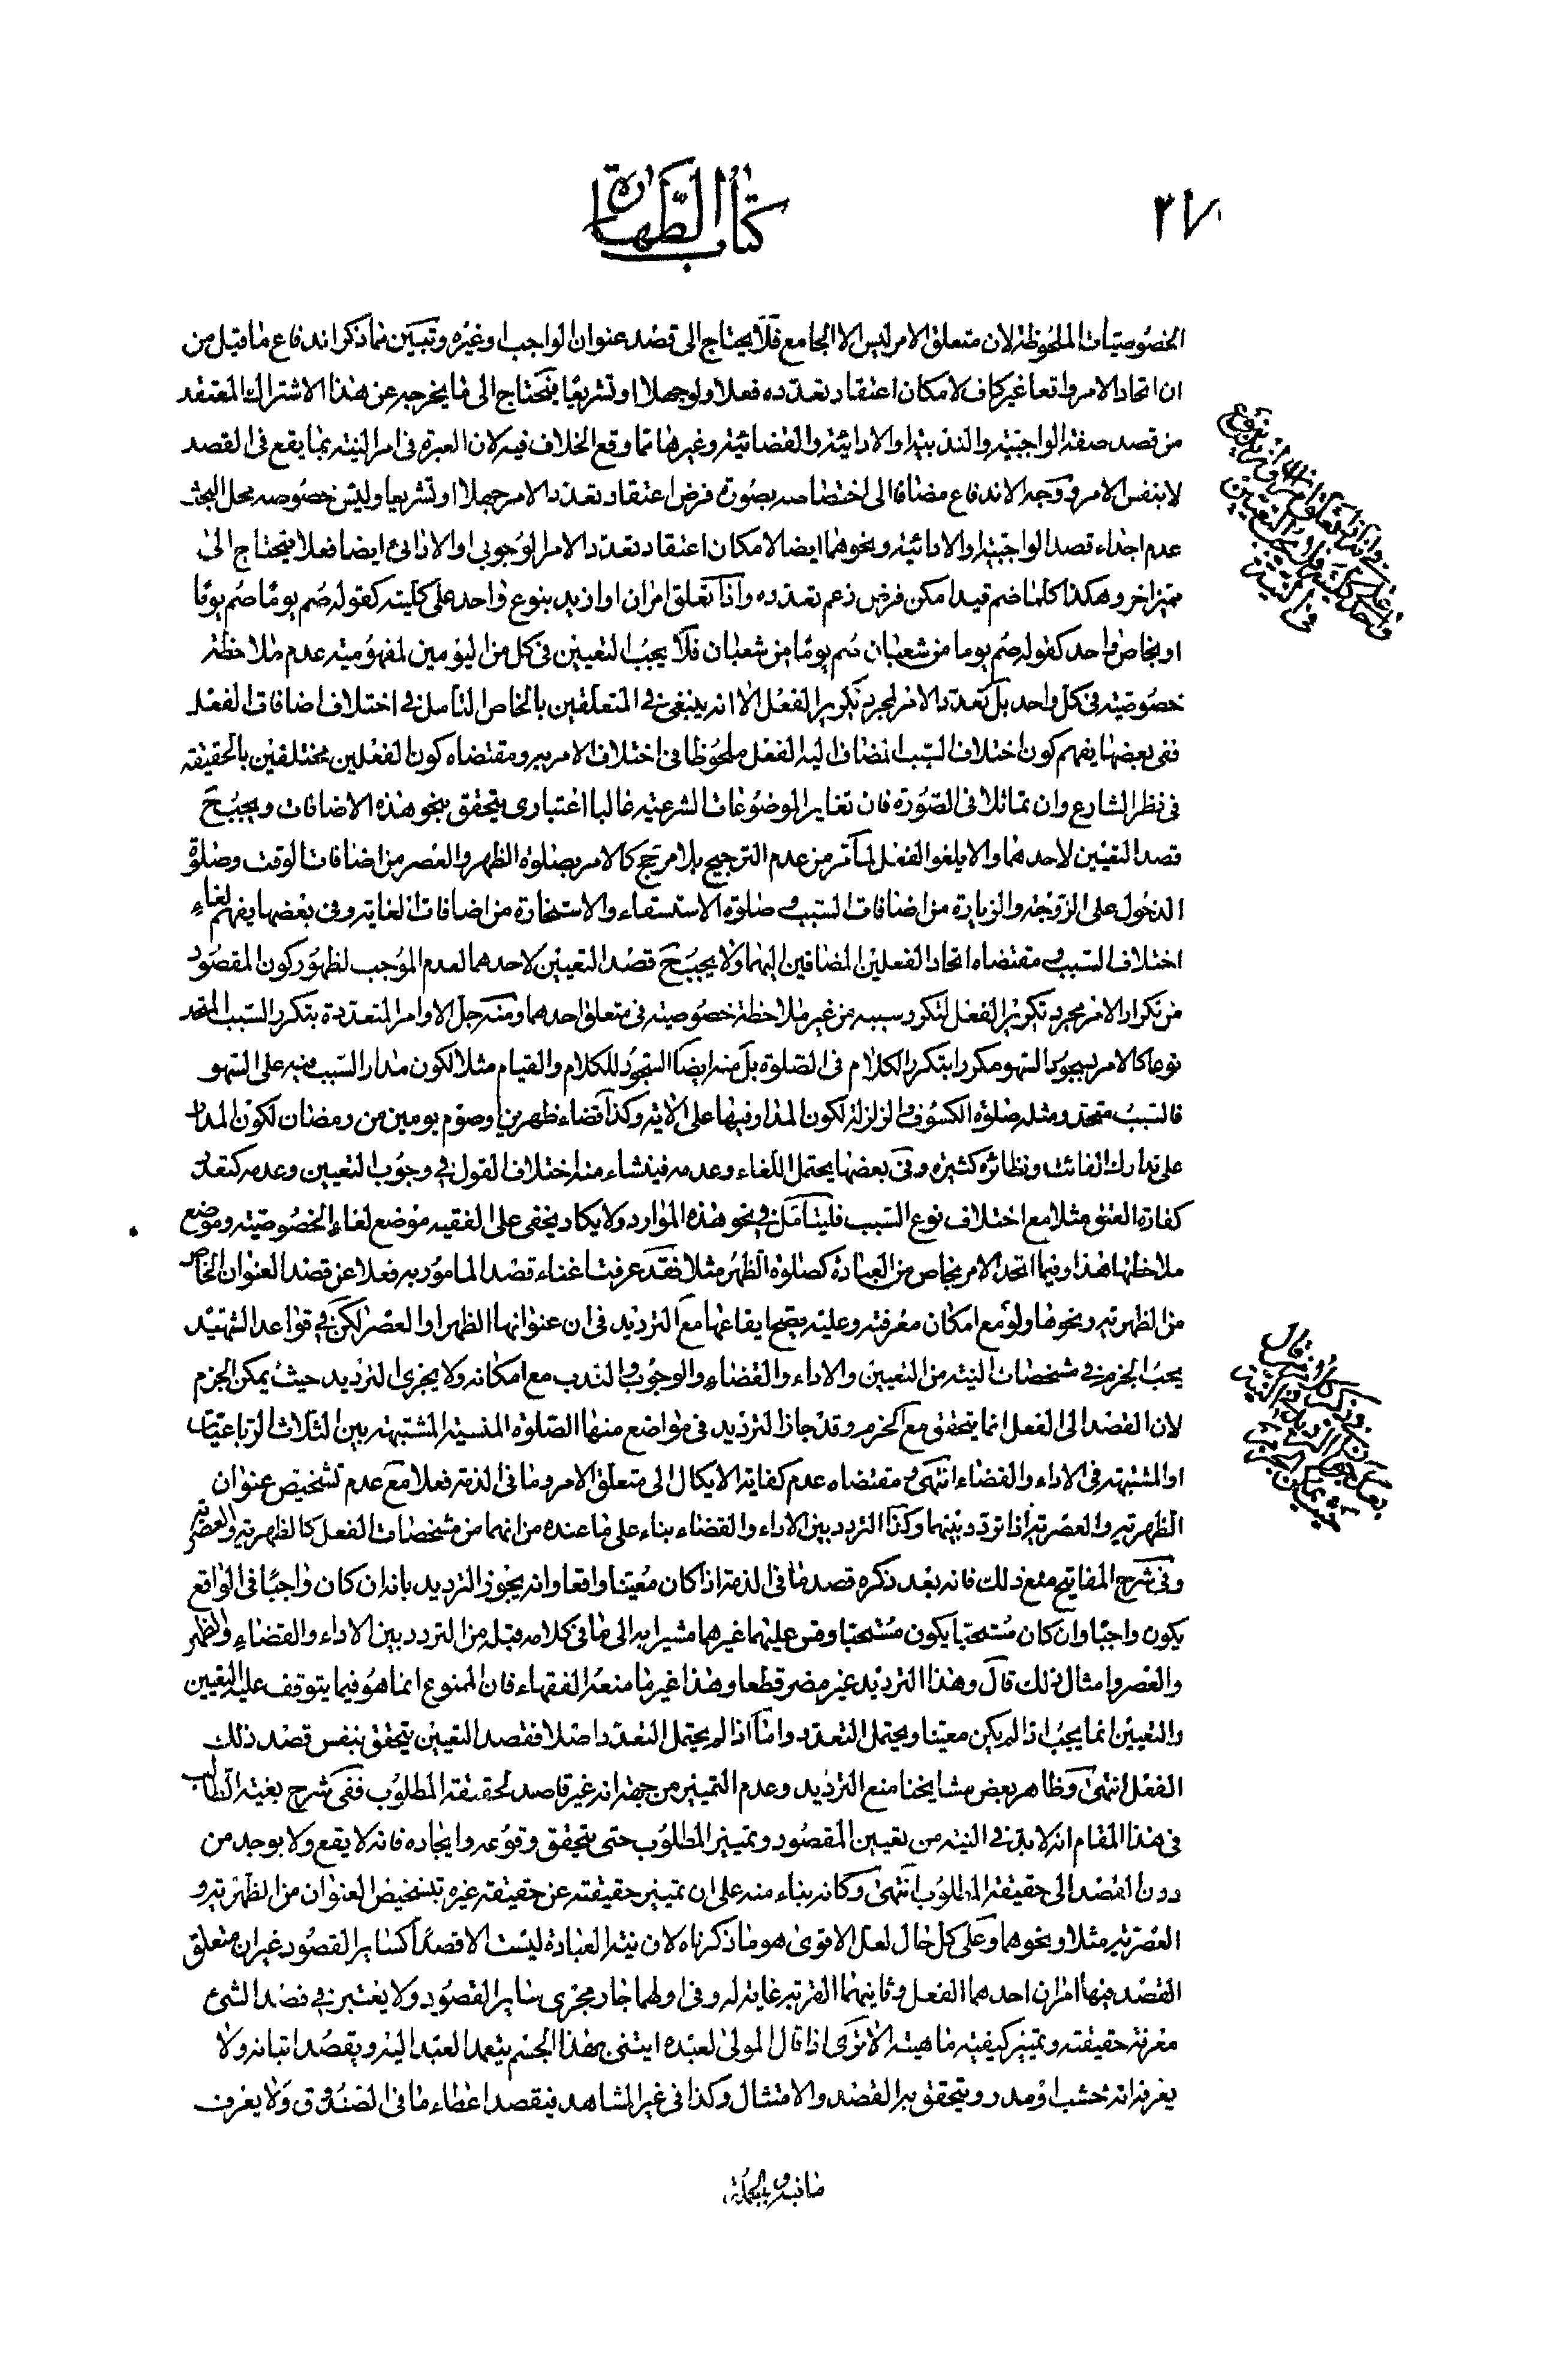 كتاب الطهارة
الخصوصيات الملحوظة لان متعلق الامر ليس الا الجامع فلا يحتاج الى قصد عنوان الواجب او غيره وتبين مما ذكر اندفاع ما قيل من
ان اتحاد الامر واقعا غير كاف لامكان اعتقاد تعدده فعلا ولو جهلا او تشريعا فيحتاج الى ما يخرجه عن هذا الاشتراك المعتقد
من قصد صفة الواجبية والندبية او الادائية والقضائية وغيرها مما وقع الخلاف فيه لان العبرة في امر النية بما يقع في القصد
لا بنفس الامر ووجه الاندفاع مضافا الى اختصاصه بصورة فرض اعتقاد تعدد الامر جهلا او تشريعا وليس خصوصه محل البحث
عدم اجداء قصد الواجبية او الادائية ونحوهما ايضا لامكان اعتقاد تعدد الامر الوجوبي او الادائي ايضا فعلا فيحتاج الى
مميز اخر وهكذا كلما ضم قيد امكن فرض زعم تعدده واذا تعلق امران او ازيد بنوع واحد على كليته كقوله صم يوما صم يوما
او بخاص واحد كقوله صم يوما من شعبان صم يوما من شعبان فلا يجب التعيين في كل من اليومين لمفهومية عدم ملاحظة
خصوصية في كل واحد بل تعدد الامر لمجرد تكرير الفعل الا انه ينبغي في المتعلقين بالخاص التامل في اختلاف اضافات الفعل
ففي بعضها يفهم كون اختلاف السبب المضاف اليه الفعل ملحوظا في اختلاف الامر به ومقتضاه كون الفعلين مختلفين بالحقيقة
في نظر الشارع وان تماثلا في الصورة فان تغاير الموضوعات الشرعية غالبا اعتباري يتحقق بنحو هذه الاضافات ويجب ح
قصد التعيين لاحدهما والا يلغو الفعل لما مر من عدم الترجيح بلا مرجح كالامر بصلوة الظهر والعصر من اضافات الوقت وصلوة
الدخول على الزوجة والزيارة من اضافات السبب وصلوة الاستسقاء والاستخارة من اضافات الغاية وفي بعضها يفهم لغاء
اختلاف السبب ومقتضاه اتحاد الفعلين المضافين اليهما ولا يجب ح قصد التعيين لاحدهما لعدم الموجب لظهور كون المقصود
من تكرار الامر مجرد تكرير الفعل لتكرر سببه من غير ملاحظة خصوصية في متعلق احدهما ومنه جل الاوامر المتعددة بتكرر السبب المتحد
نوعا كالامر بسجود السهو مكررا بتكرر الكلام في الصلوة بل منه ايضا السجود للكلام والقيام مثلا لكون مدار السبب فيه على السهو
فالسبب متحد ومثله صلوة الكسوف والزلزلة لكون المدار فيها على الاية وكذا قضاء ظهرين او صوم يومين من رمضان لكون المدار
على تدارك الفائت ونظائره كثيرة وفي بعضها يحتمل اللغاء وعدمه فينشاء منه اختلاف القول في وجوب التعيين وعدمه كتعدد
كفارة العتق مثلا مع اختلاف نوع السبب فليتامل في نحو هذه الموارد ولا يكاد يخفى على الفقيه موضع لغاء الخصوصية وموضع
ملاحظتها هذا وفيما اتحد الامر بخاص من العبادة كصلوة الظهر مثلا فقد عرفت اغناء قصد المامور به فعلا عن قصد العنوان الخاص
من الظهرية ونحوها ولو مع امكان معرفته وعليه يصح ايقاعها مع الترديد في ان عنوانها الظهر او العصر لكن في قواعد الشهيد
يجب الجزم في مشخصات النية من التعيين والاداء والقضاء والوجوب والندب مع امكانه ولا يجزي الترديد حيث يمكن الجزم
لان القصد الى الفعل انما يتحقق مع الجزم وقد جاز الترديد في مواضع منها الصلوة المنسية المشتبهة بين الثلاث الرباعيات
او المشتبهة في الاداء والقضاء انتهى ومقتضاه عدم كفاية الايكال الى متعلق الامر وما في الذمة فعلا مع عدم تشخيص عنوان
الظهرية والعصرية اذا تردد بينهما وكذا التردد بين الاداء والقضاء بناء على ما عنده من انهما من مشخصات الفعل كالظهرية والعصرية
وفي شرح المفاتيح منع ذلك فانه بعد ذكره قصد ما في الذمة اذا كان معينا واقعا وانه يجوز الترديد بانه ان كان واجبا في الواقع
يكون واجبا وان كان مستحبا يكون مستحبا وقس عليهما غيرهما مشيرا به الى ما في كلامه قبله من التردد بين الاداء والقضاء والظهر
والعصر وامثال ذلك قال وهذا الترديد غير مضر قطعا وهذا غير ما منعه الفقهاء فان الممنوع انما هو فيما يتوقف عليه التعيين
والتعيين انما يجب اذا لم يكن معينا ويحتمل التعدد واما اذا لم يحتمل التعدد اصلا فقصد التعيين يتحقق بنفس قصد ذلك
الفعل انتهى وظاهر بعض مشايخنا منع الترديد وعدم التمييز من جهة انه غير قاصد لحقيقة المطلوب ففي شرح بغية الطالب
في هذا المقام انه لا بد في النية من تعيين المقصود وتمييز المطلوب حتى يتحقق وقوعه وايجاده فانه لا يقع ولا يوجد من
دون القصد الى حقيقة المطلوب انتهى وكانه بناء منه على ان تمييز حقيقته عن حقيقة غيره بتشخيص العنوان من الظهرية و
العصرية مثلا ونحوهما وعلى كل حال لعل الاقوى هو ما ذكرناه لان نية العبادة ليست الا قصدا كساير القصود غير ان متعلق
القصد فيها امران احدهما الفعل وثانيهما القربة غاية له وفي اولهما جار مجرى ساير القصود ولا يعتبر في قصد الشئ
معرفة حقيقته وتمييز كيفية ماهيته الا ترى اذا قال المولى لعبده ايتني بهذا الجسم يتعمد العبد اليه ويقصد اتيانه ولا
يعرف انه خشب او مدر ويتحقق به القصد والامتثال وكذا في غير المشاهد فيقصد اعطاء ما في الصندوق ولا يعرف
ما فيه